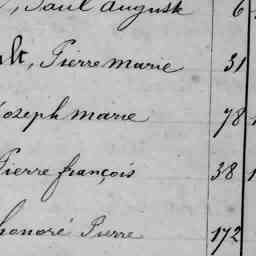 , Paul Auguste 6
lt, Pierre marie 31
Joseph marie 78
Pierre françois 38
honoré Pierre 172